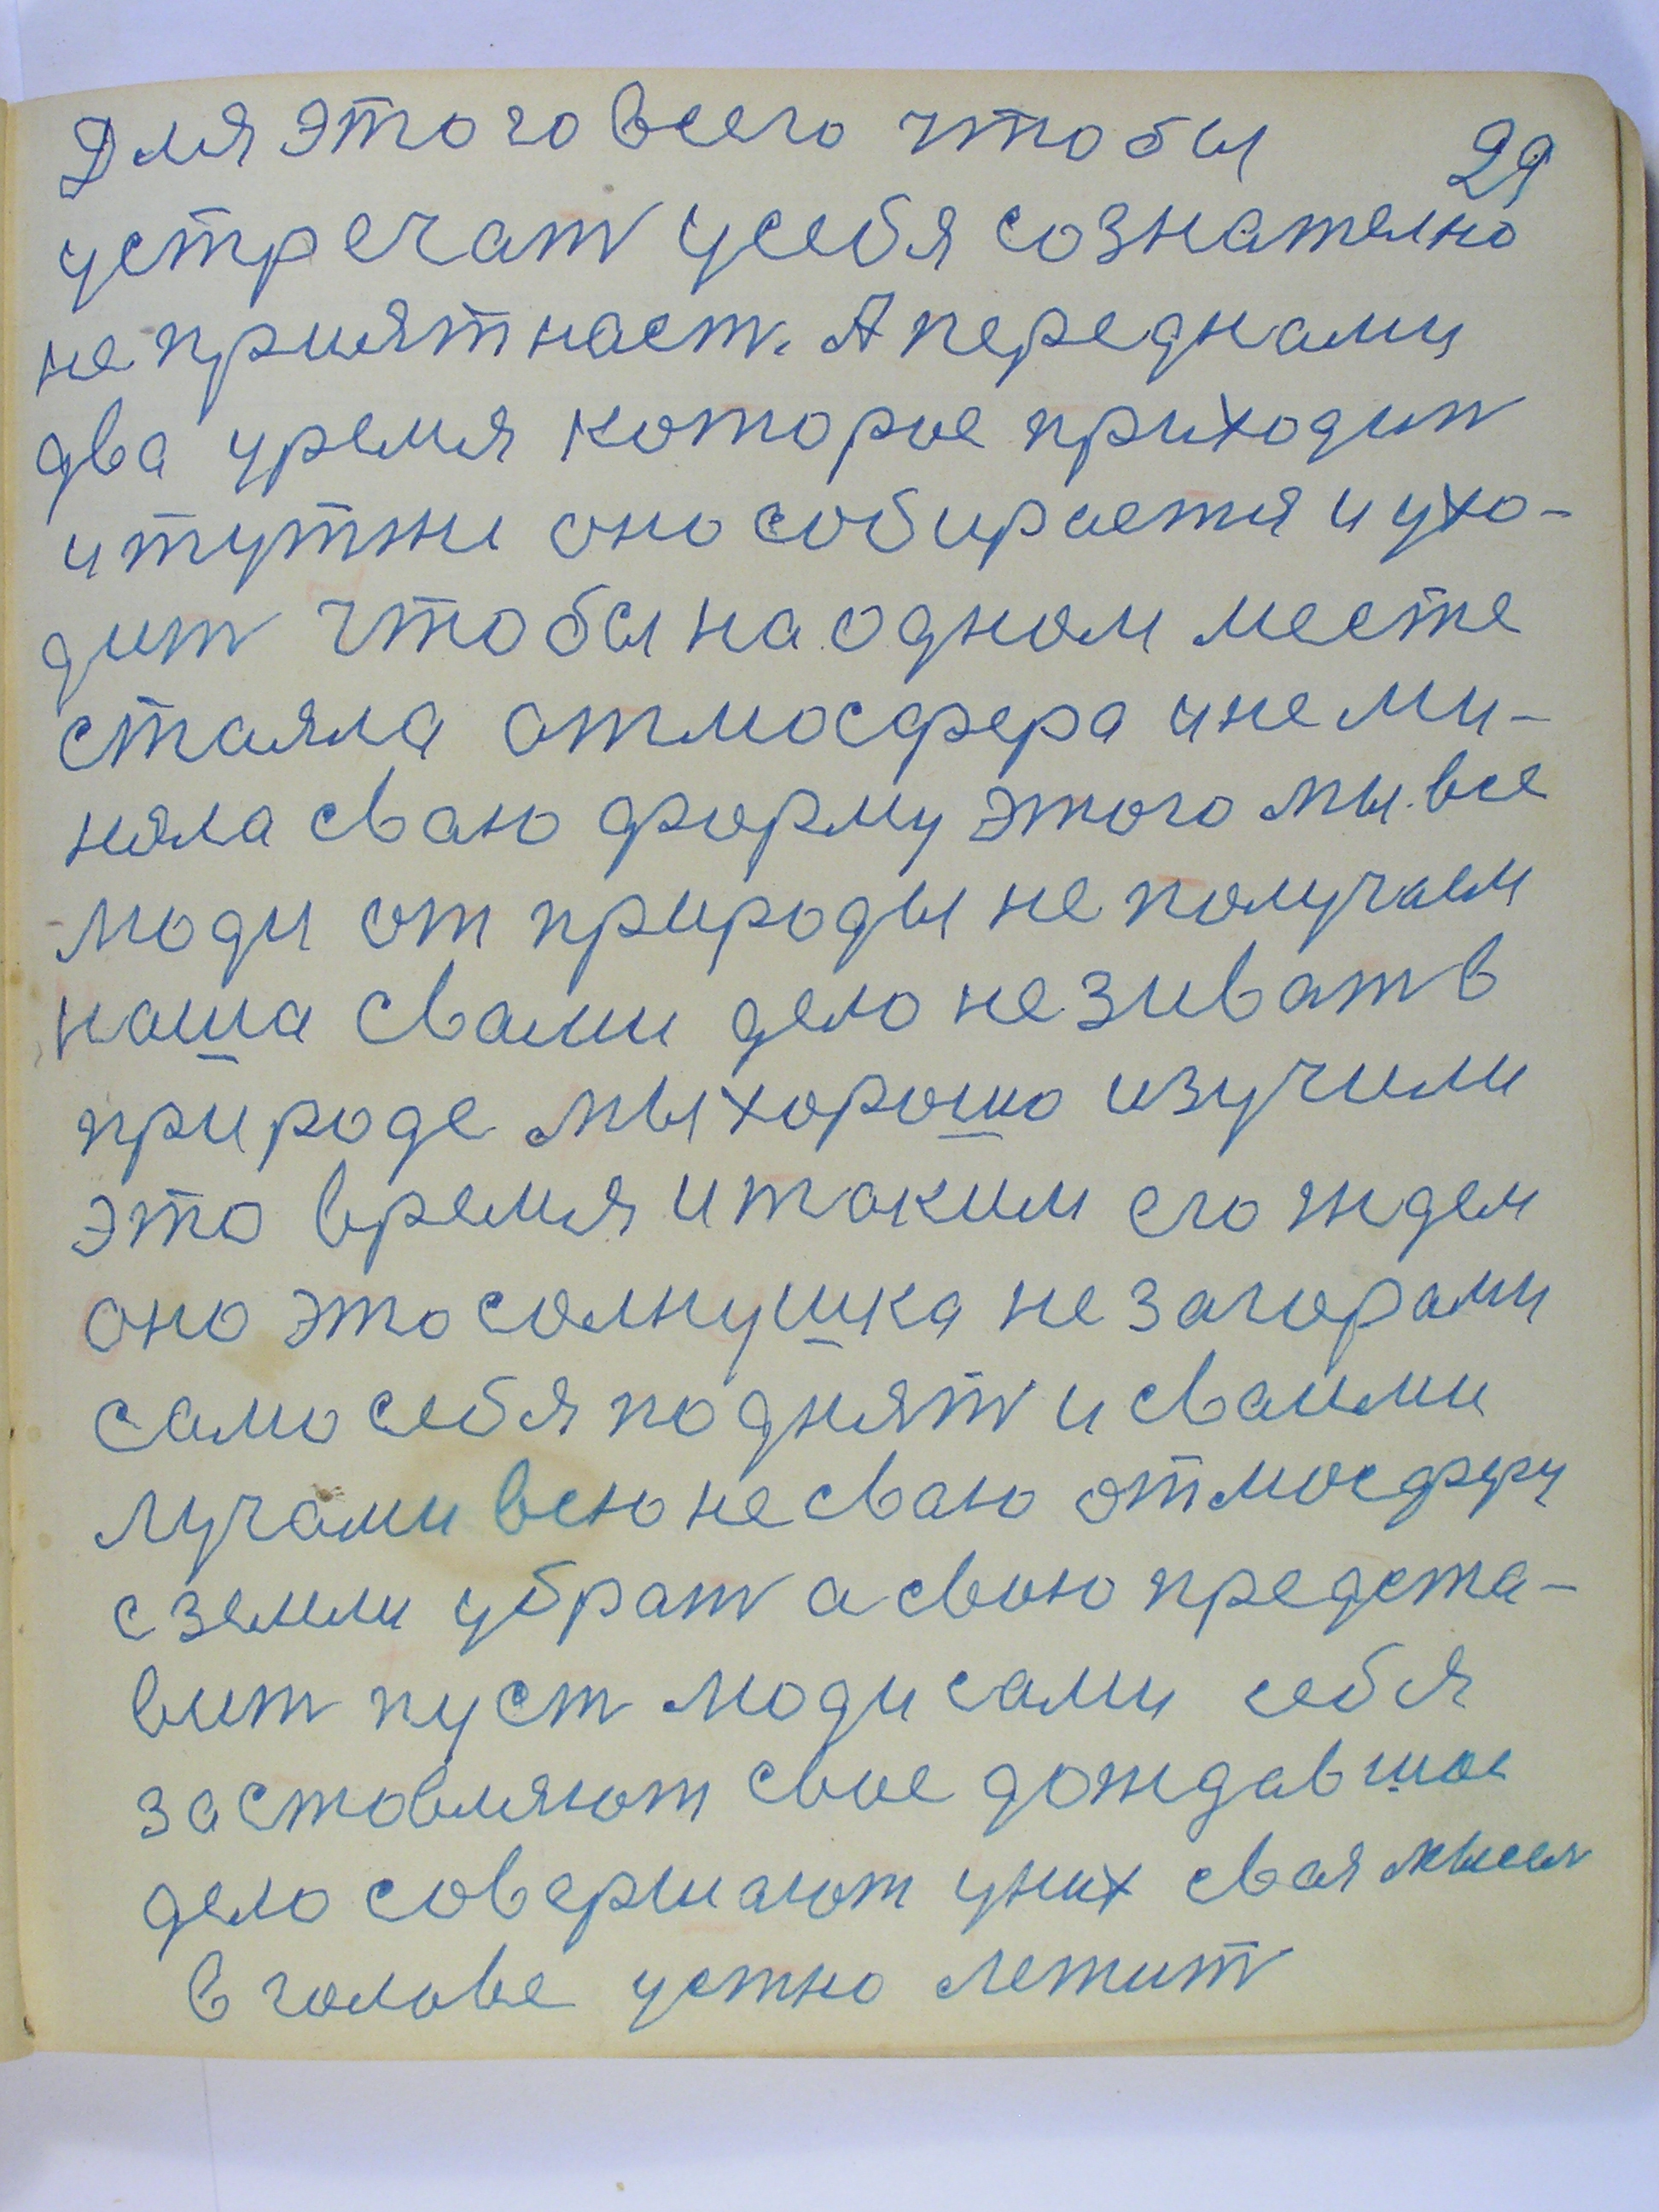 Для этого всего чтобы 29
устречат усебя сознателно
неприятнаст. А переднами
два уремя которое приходит
итутже оно собирается и ухо-
дит чтобы на одном месте
стаяла отмосфера и не ми-
няла сваю форму этого мы все
люди от природы не получаем
наша свами дело не зиват в
природе мы хорошо изучили
это время и таким его ждем
оно это солнушка не загорами
само себя поднят и сваими
лучами всю не сваю отмосферу
с земли убрат а свою предста-
вит пуст люди сами себя
заставляют свое дождавшое
дело совершают у них свая мысл
в голове устно летит